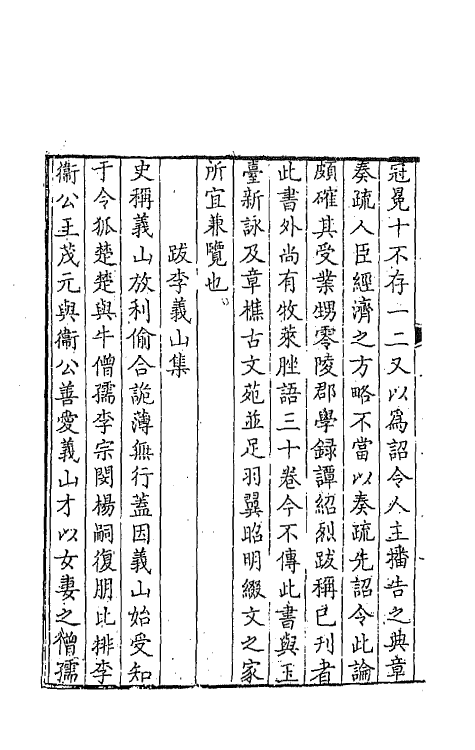 冠冕十不存一二又以為詔令人主播告之典章
奏疏人臣經濟之方略不當以奏疏先詔令此論
頗確其受業甥零陵郡學録譚紹烈跋稱已刋者
此書外尚有牧萊脞語三十卷今不傳此書與玉
臺新詠及章樵古文苑並足羽翼昭明綴文之家
所宜兼覽也。
跋李義山集
史稱義山放利偷合詭薄無行蓋因義山始受知
于令狐楚楚與牛僧孺李宗閔楊嗣復朋比排李
衞公王茂元與衞公善愛義山才以女妻之僧孺